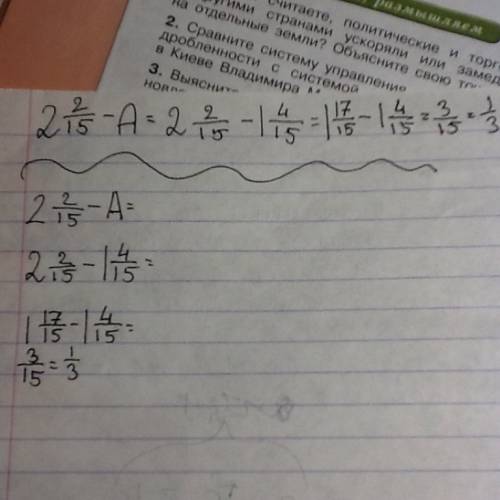 считаете, политические и торг
другими странами ускоряли или замед
на отдельные земли? Объясните свою точ
2. Сравните систему управления
дробленности с системой
в Киеве Владимира М
3. Выясните
размышляем
2 2/15 - A = 2 2/15 - 1 4/15 = 1 17/15 - 1 4/15 = 3/15 = 1/3
2 2/15 - A =
2 2/15 - 1 4/15 =
1 17/15 - 1 4/15 =
3/15 = 1/3